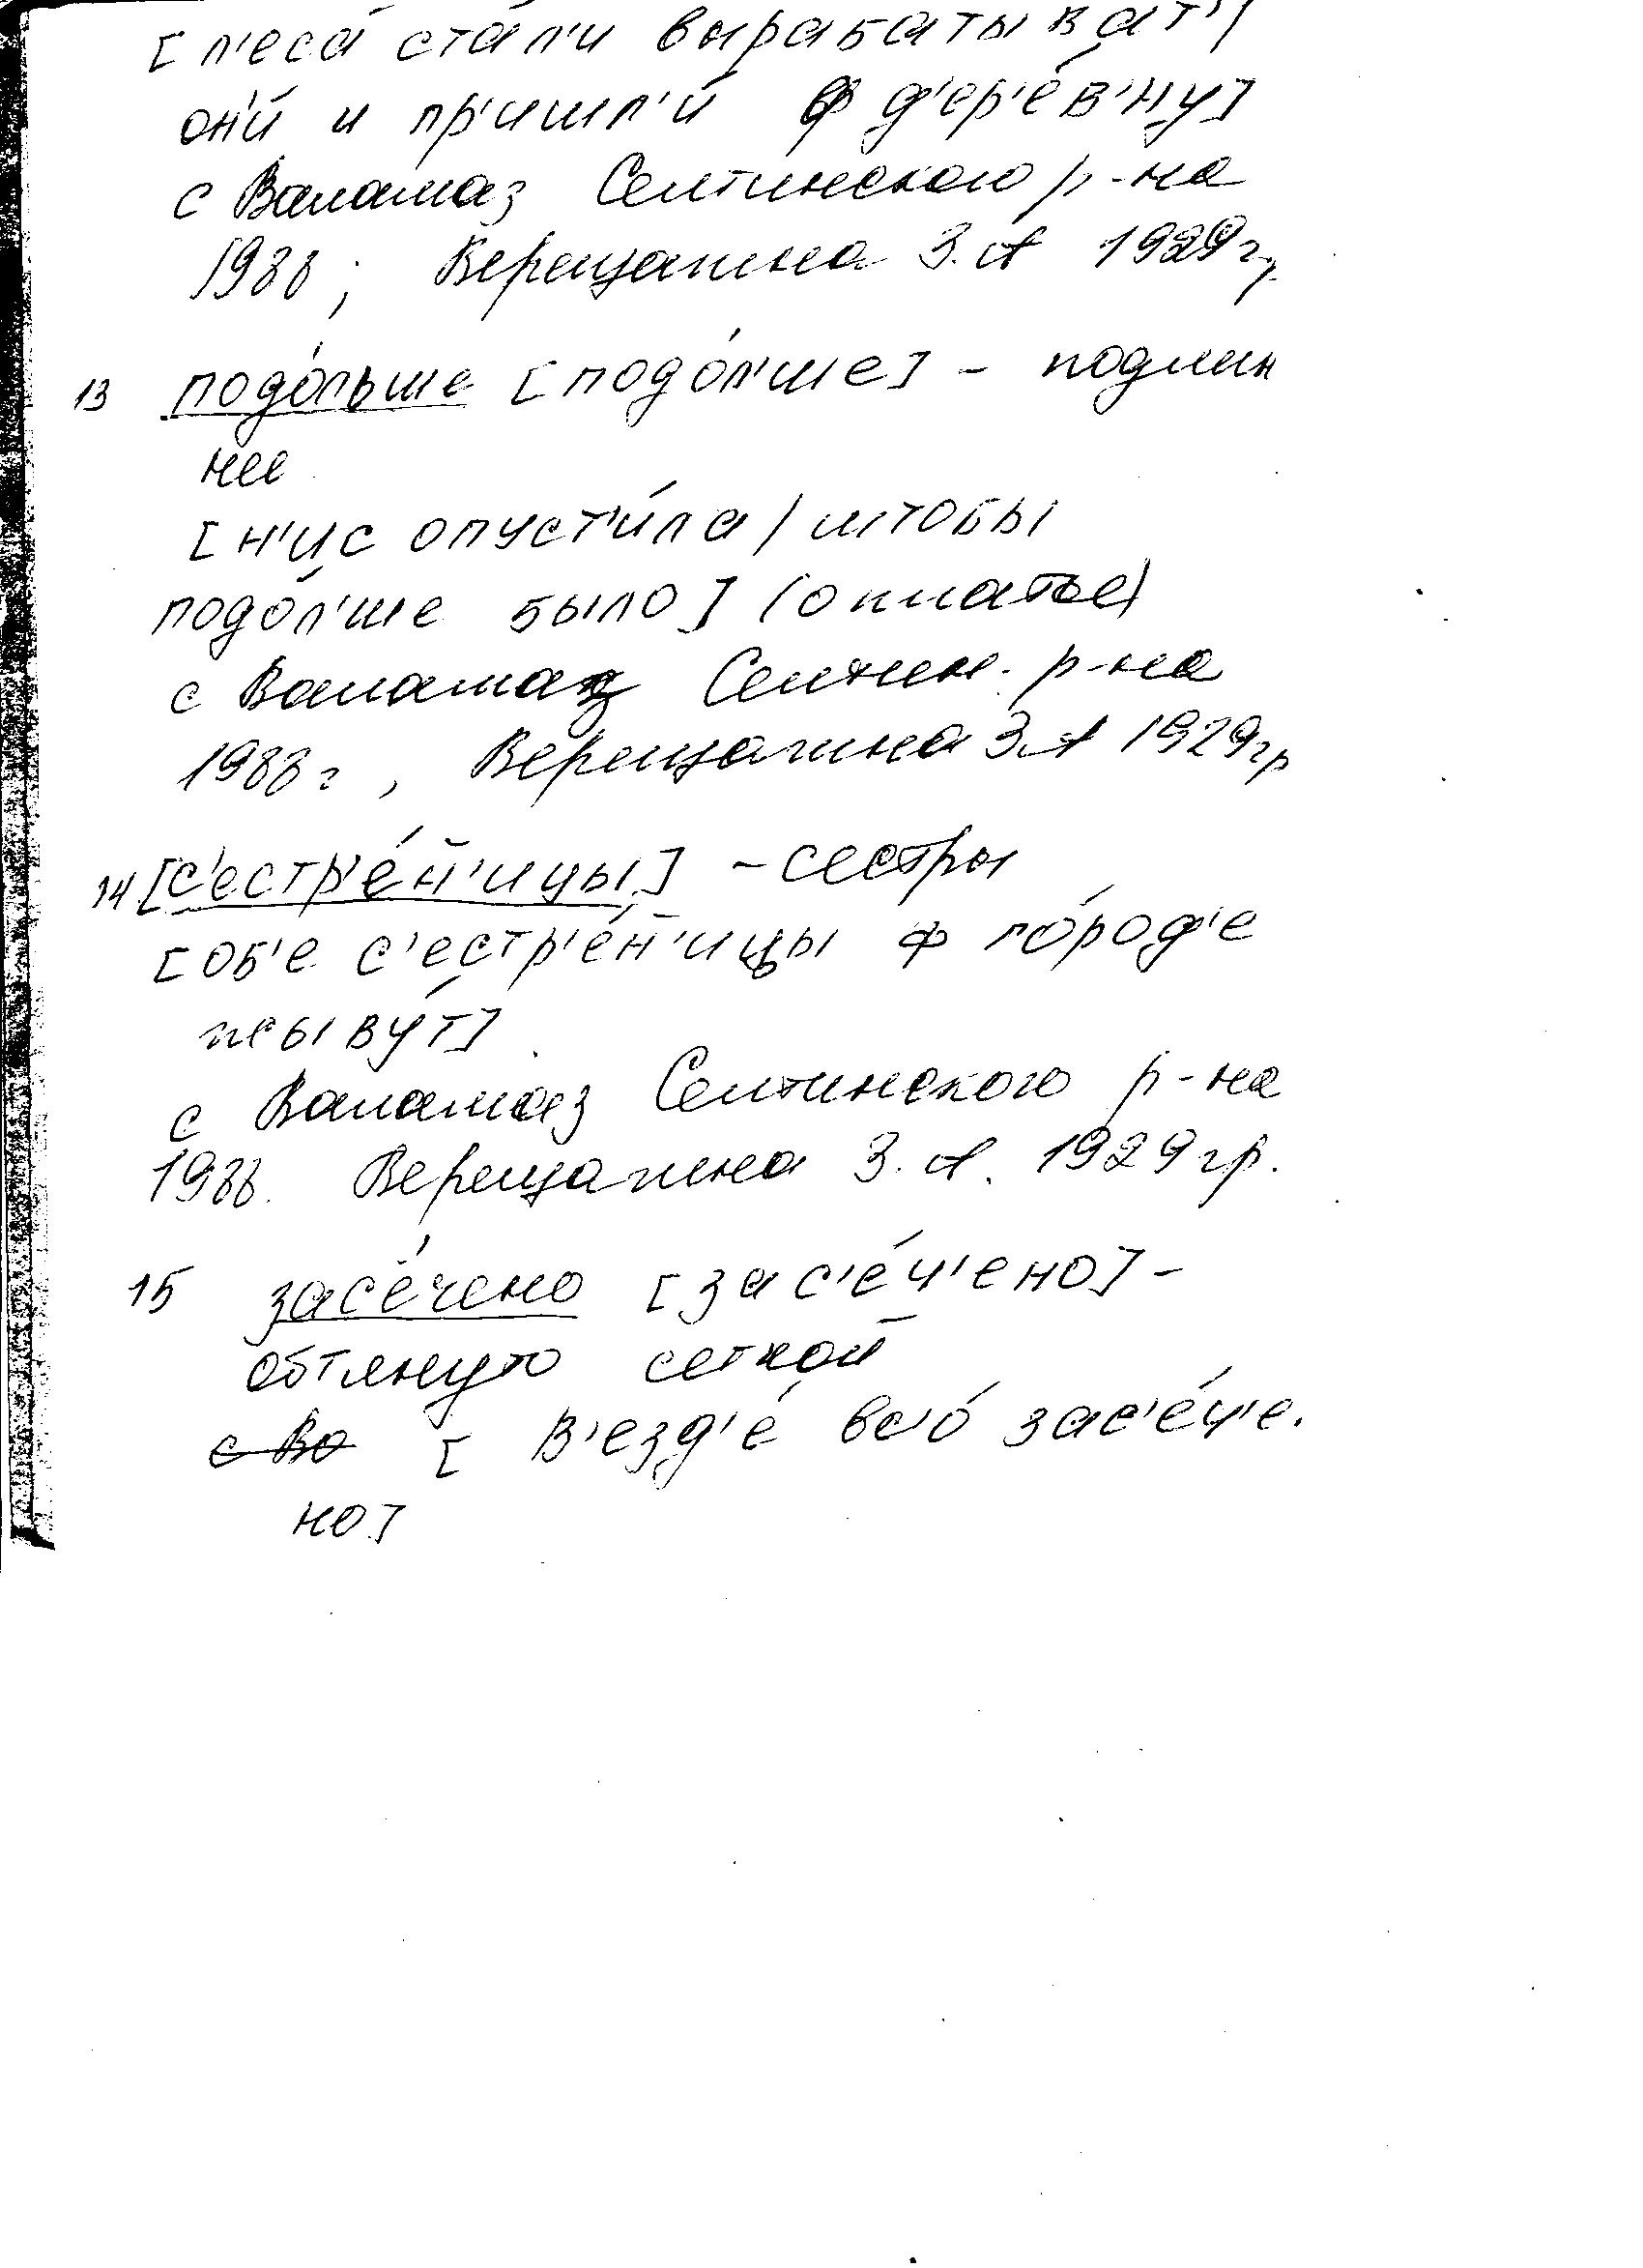 [л'еса́ ста́л'и вырабатыват'/
он'и́ и пр'ишл'и́ ф д'ер'е́в'ну]
с Валамаз Селтинского р-на
1988; Верещагина З.А 1929гр
13 подо́льше [подо́л'ше] - подлин
нее
[н'ис опуст'и́ла / штобы
подо́л'ше было] (о платье)
с Валамаз Селтин. р-на
1988г, Верещагина З.А 1929гр
14 [с'естр'е́н'ицы] - сёстры
[об'е с'естр'е́н'ицы ф го́род'е
жыву́т]
с Валамаз Селтинского р-на
1988. Верещагина З.А. 1929гр.
15 засе́чено [зас'е́ч'ено] -
обтянуто сеткой
с Ва [в'езд'е́ вс'о́ зас'е́ч'е.
но]